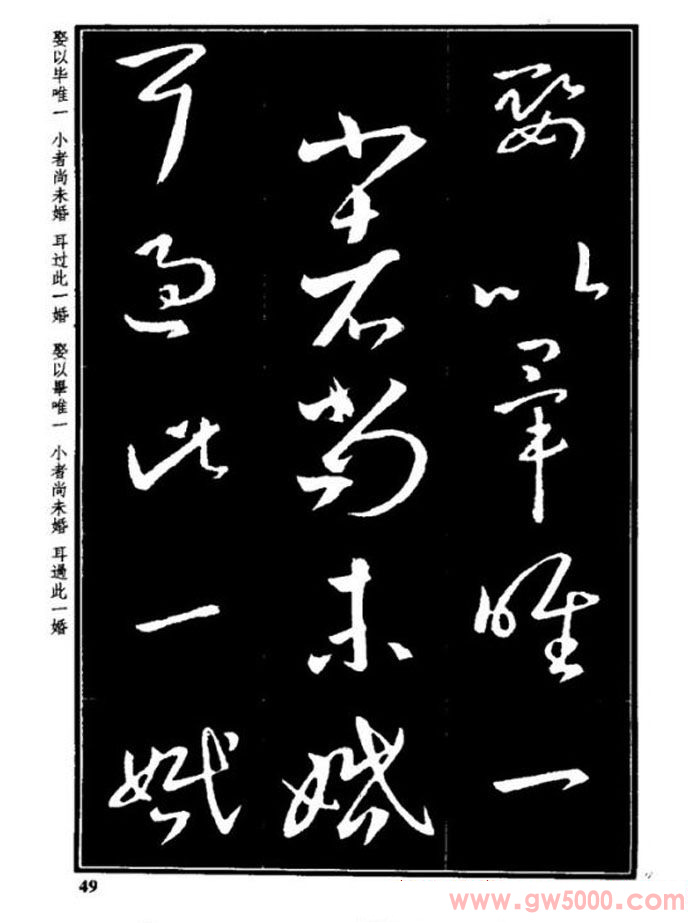 娶以畢唯一
小者尚未婚
耳過此一婚
娶以毕唯一 小者尚未婚 耳过此一婚 娶以畢唯一 小者尚未婚 耳過此一婚
49
www.gw5000.com